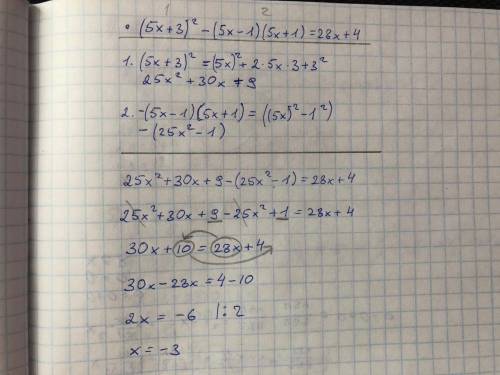 1 2
• (5x+3)² - (5x-1)(5x+1) = 28x+4
1. (5x+3)² = (5x)² + 2·5x·3+3²
25x² + 30x + 9
2. -(5x-1)(5x+1) = ((5x)² - 1²)
-(25x² - 1)
25x² + 30x + 9 - (25x² - 1) = 28x+4
25x² + 30x + 9 - 25x² + 1 = 28x+4
30x + 10 = 28x + 4
30x - 28x = 4 - 10
2x = -6 |:2
x = -3